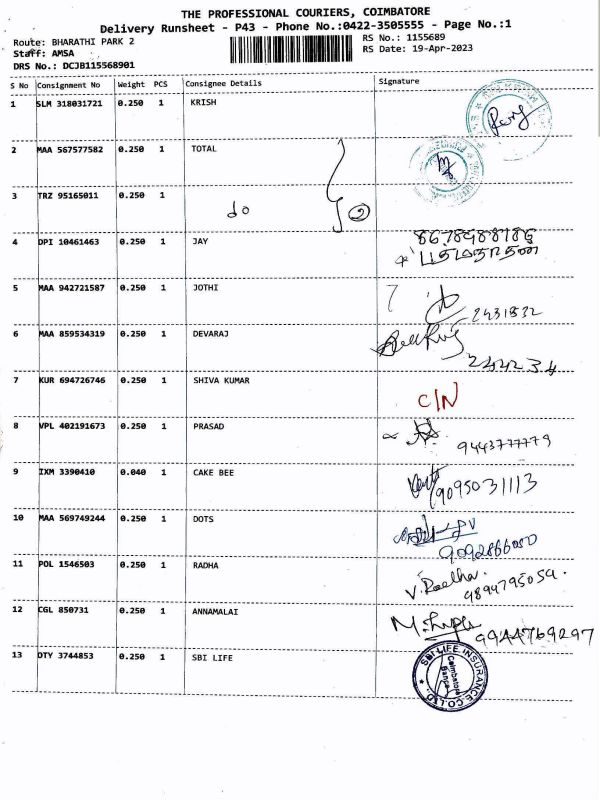 THE PROFESSIONAL COURIERS, COIMBATORE
Delivery Runsheet - P43 - Phone No.:0422-3505555 - Page No.:1
Route: BHARATHI PARK 2
RS No.: 1155689
Staff: AMSA
RS Date: 19-Apr-2023
DRS No.: DCJB115568901
S No Consignment No Weight PCS Consignee Details Signature
1 SLM 318031721 0.250 1 KRISH
2 MAA 567577582 0.250 1 TOTAL
3 TRZ 95165011 0.250 1
do 2
4 DPI 10461463 0.250 1 JAY
5 MAA 942721587 0.250 1 JOTHI
2431832
6 MAA 859534319 0.250 1 DEVARAJ
244234
7 KUR 694726746 0.250 1 SHIVA KUMAR
C/N
8 VPL 402191673 0.250 1 PRASAD
9443777779
9 IXM 3390410 0.040 1 CAKE BEE
9095031113
10 MAA 569749244 0.250 1 DOTS
9092866050
11 POL 1546503 0.250 1 RADHA
V. Radha.
9894795059.
12 CGL 850731 0.250 1 ANNAMALAI
9944769297
13 DTY 3744853 0.250 1 SBI LIFE
SBI LIFE INSURANCE CO.LTD
Coimbatore